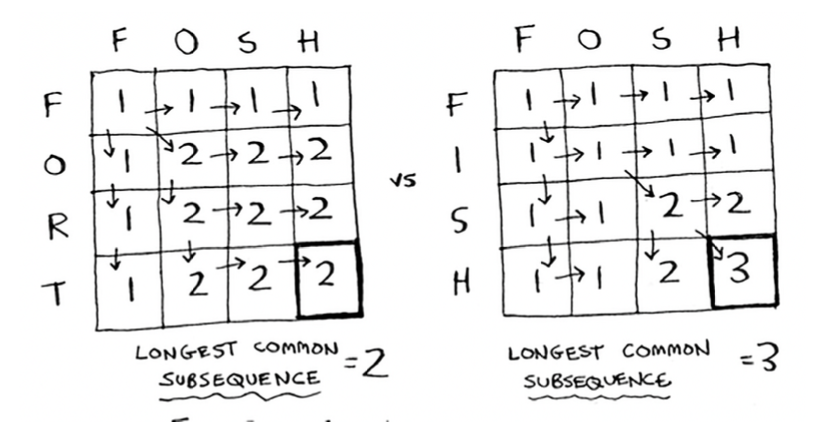 F O S H
F 1 1 1 1
O 1 2 2 2
R 1 2 2 2
T 1 2 2 2
LONGEST COMMON
SUBSEQUENCE = 2
vs
F O S H
F 1 1 1 1
I 1 1 1 1
S 1 1 2 2
H 1 1 2 3
LONGEST COMMON
SUBSEQUENCE = 3